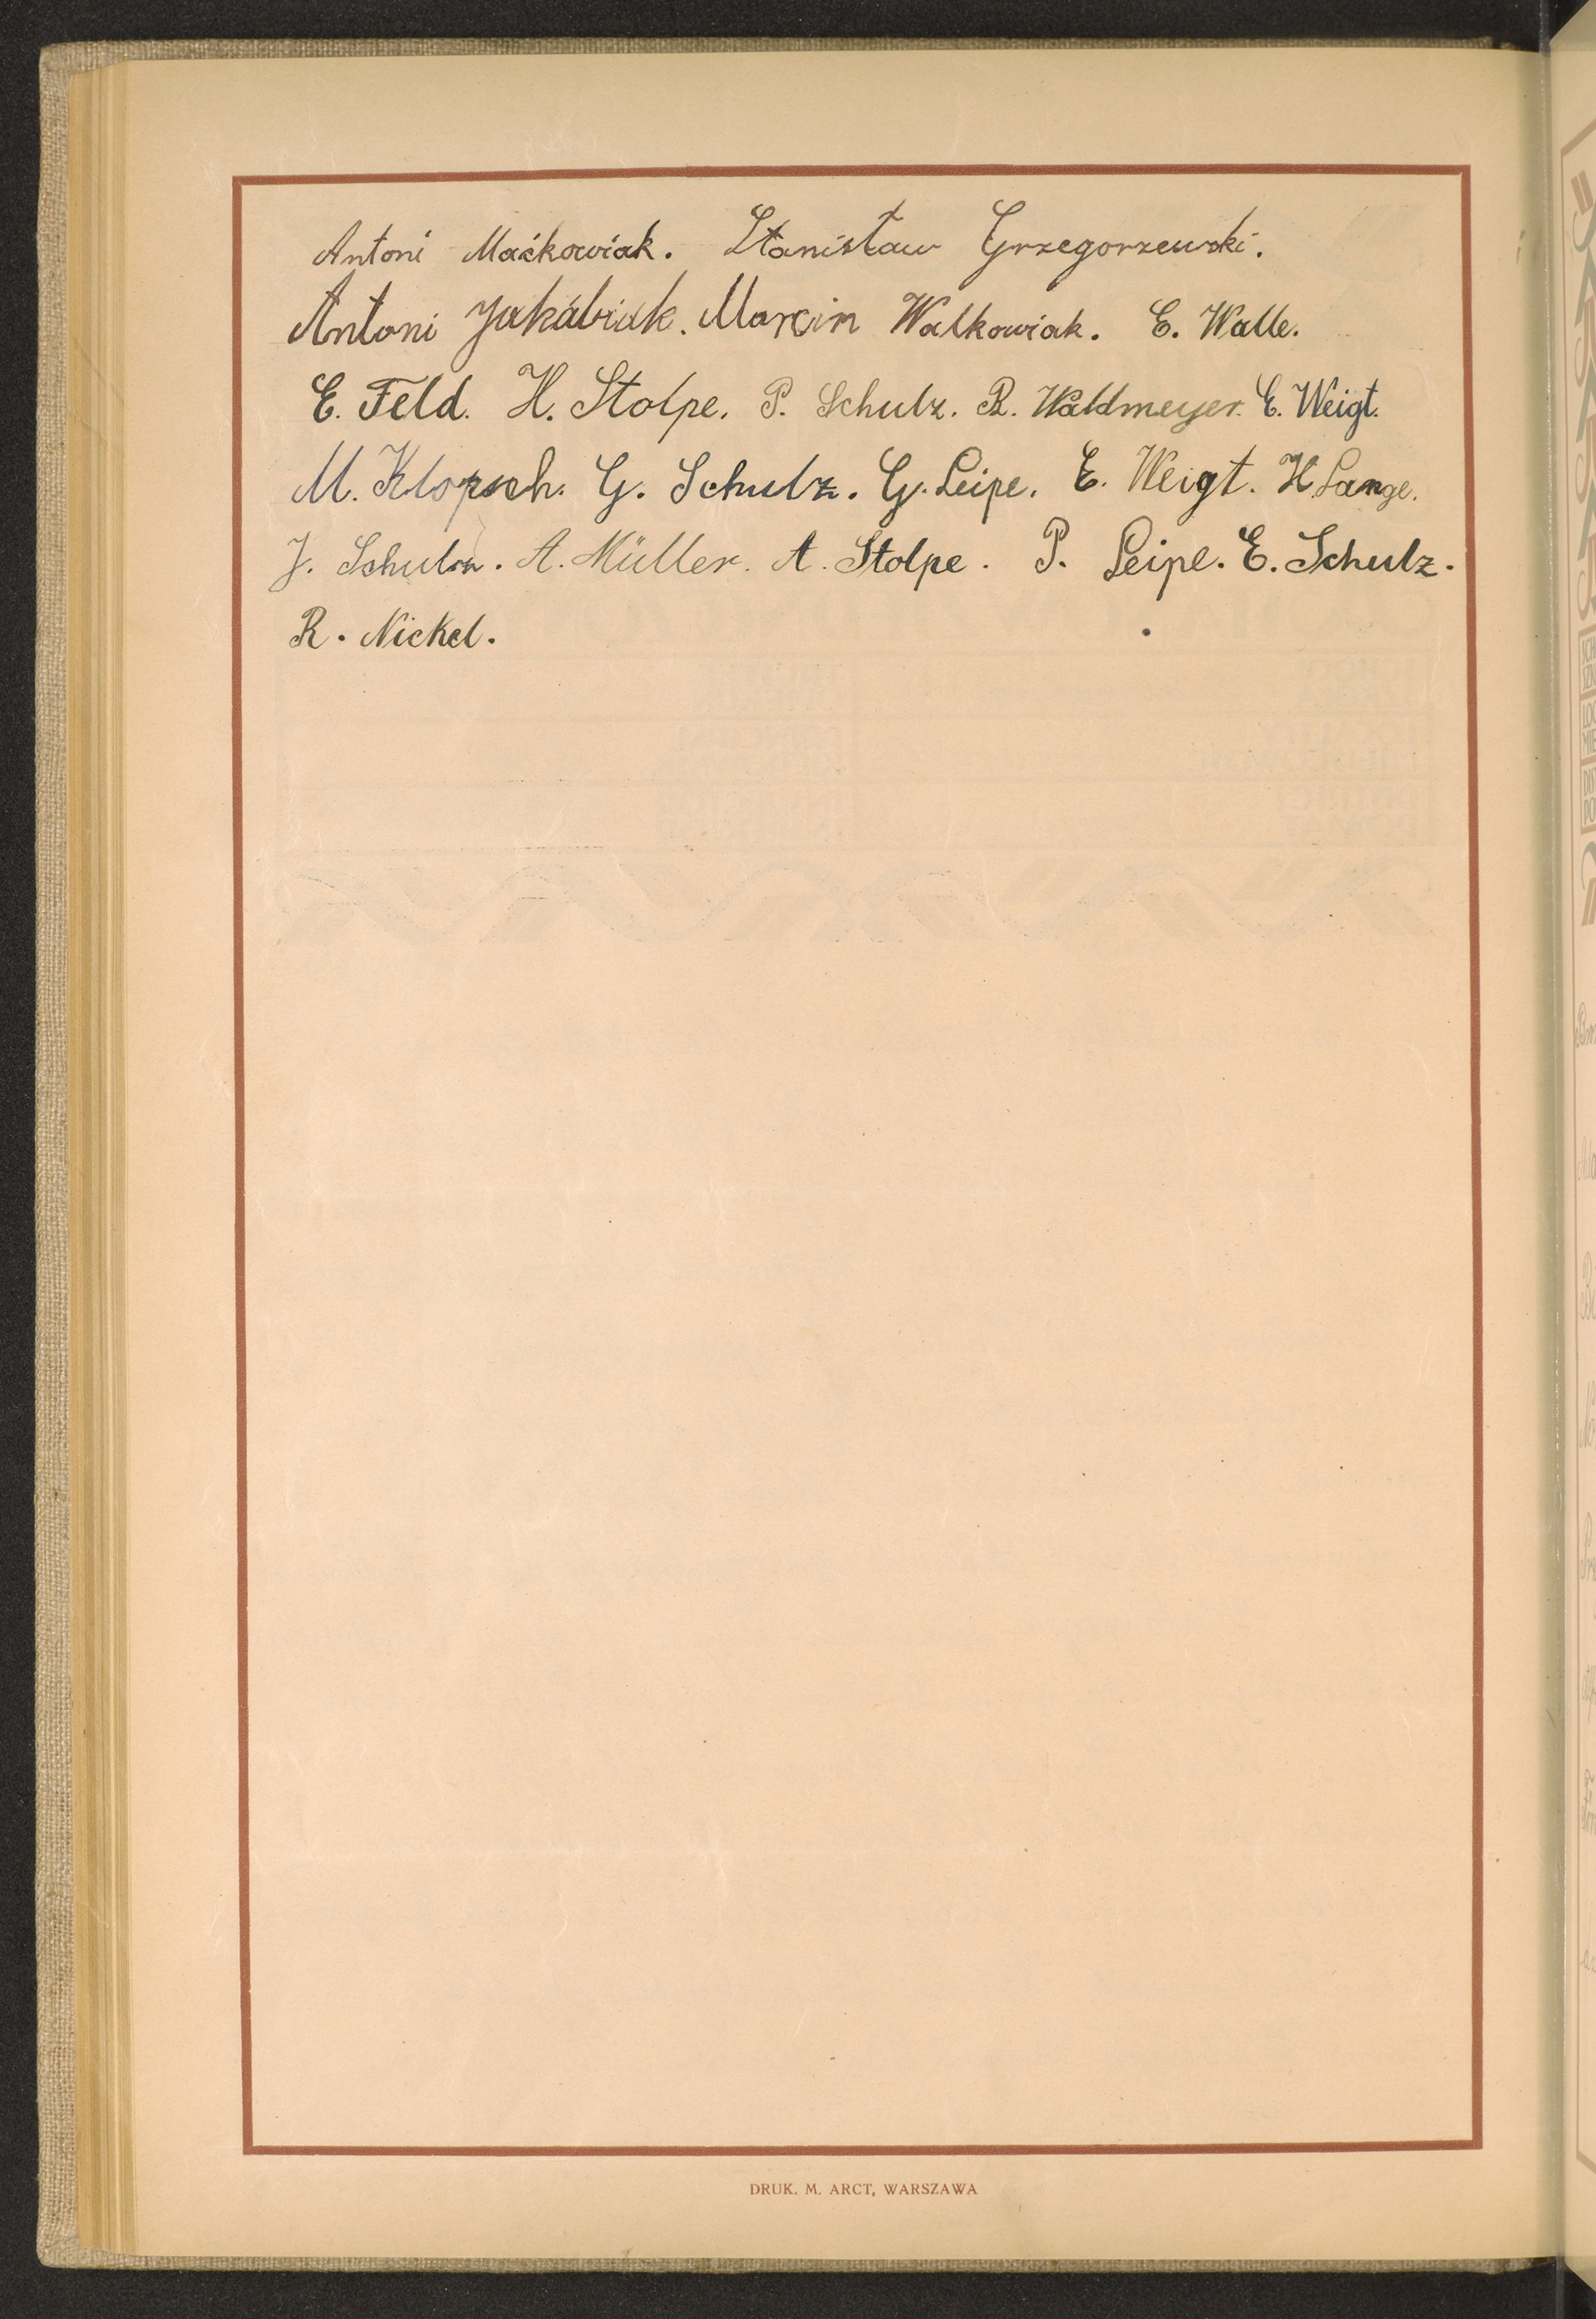 Antoni Maćkowiak. Stanisław Grzegorzewski.
Antoni Jakábiak. Marcin Walkowiak. E. Walle.
E. Feld. H. Stolpe. P. Schulz. R. Waldmeyer. E. Weigt.
M. Klopsch. G. Schulz. G. Leipe. E. Weigt. H. Lange.
J. Schulz. A. Müller. A. Stolpe. P. Leipe. E. Schulz.
R. Nickel.
DRUK. M. ARCT, WARSZAWA